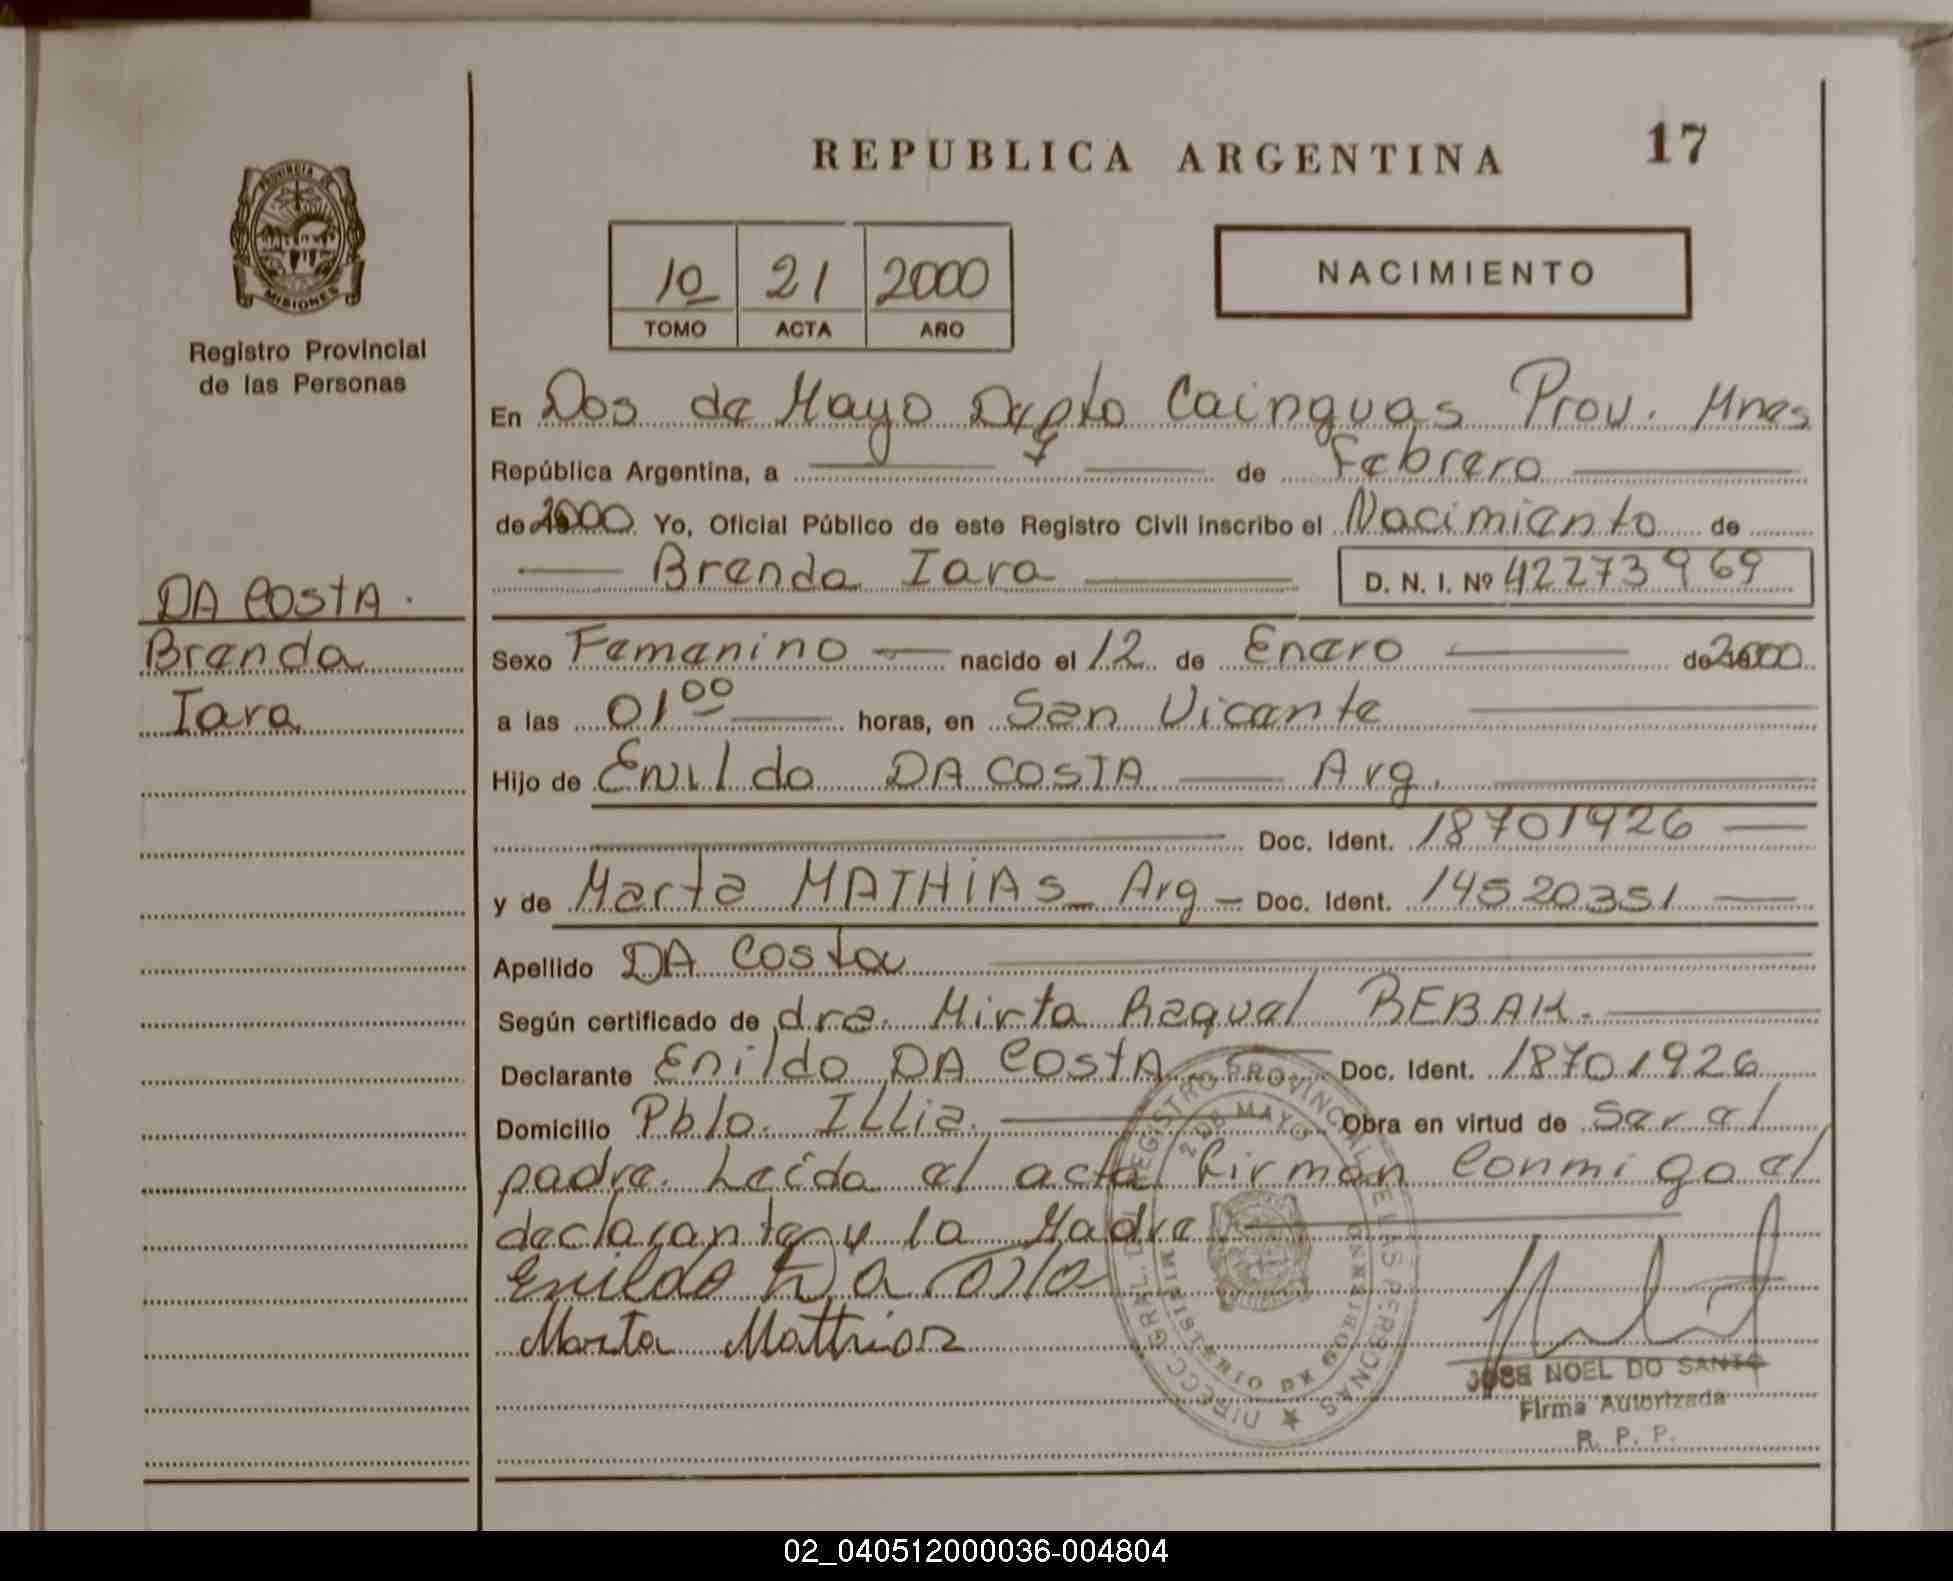 REPUBLICA ARGENTINA
17
PROVINCIA DE
MISIONES
Registro Provincial
de las Personas
10 21 2000
TOMO ACTA AÑO
NACIMIENTO
En Dos de Mayo Depto Cainguas Prov. Mnes
República Argentina, a 7 de Febrero
de 2000 Yo, Oficial Público de este Registro Civil inscribo el Nacimiento de
Brenda Iara D. N. I. Nº 42273969
DA COSTA.
Brenda
Iara
Sexo Femenino nacido el 12 de Enero de 2000
a las 01 00 horas, en San Vicente
Hijo de Enildo DA COSTA Arg.
Doc. Ident. 18701926
y de Marta MATHIAS Arg Doc. Ident. 14520351
Apellido DA Costa
Según certificado de dra. Mirta Raquel BEBAK.
Declarante Enildo DA COSTA Doc. Ident. 18701926
Domicilio Pblo. ILLia. Obra en virtud de Ser el
padre. Leída el acta firman Conmigo el
declarante y la Madre
Enildo Da Costa
Marta Mathias
DIRECC. GRAL. DEL REGISTRO PROVINCIAL DE LAS PERSONAS
2 DE MAYO
MINISTERIO DE GOBIERNO
JOSE NOEL DO SANTO
Firma Autorizada
R. P. P.
02_040512000036-004804